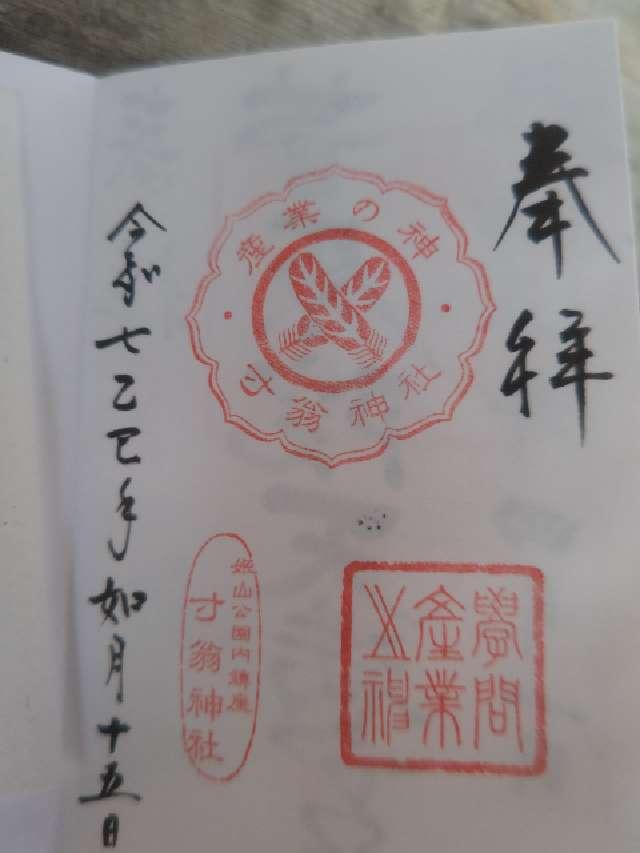 奉拝
産業の神
寸翁神社
學問
産業
之神
姫山公園内鎮座
寸翁神社
令和七乙巳年如月十五日